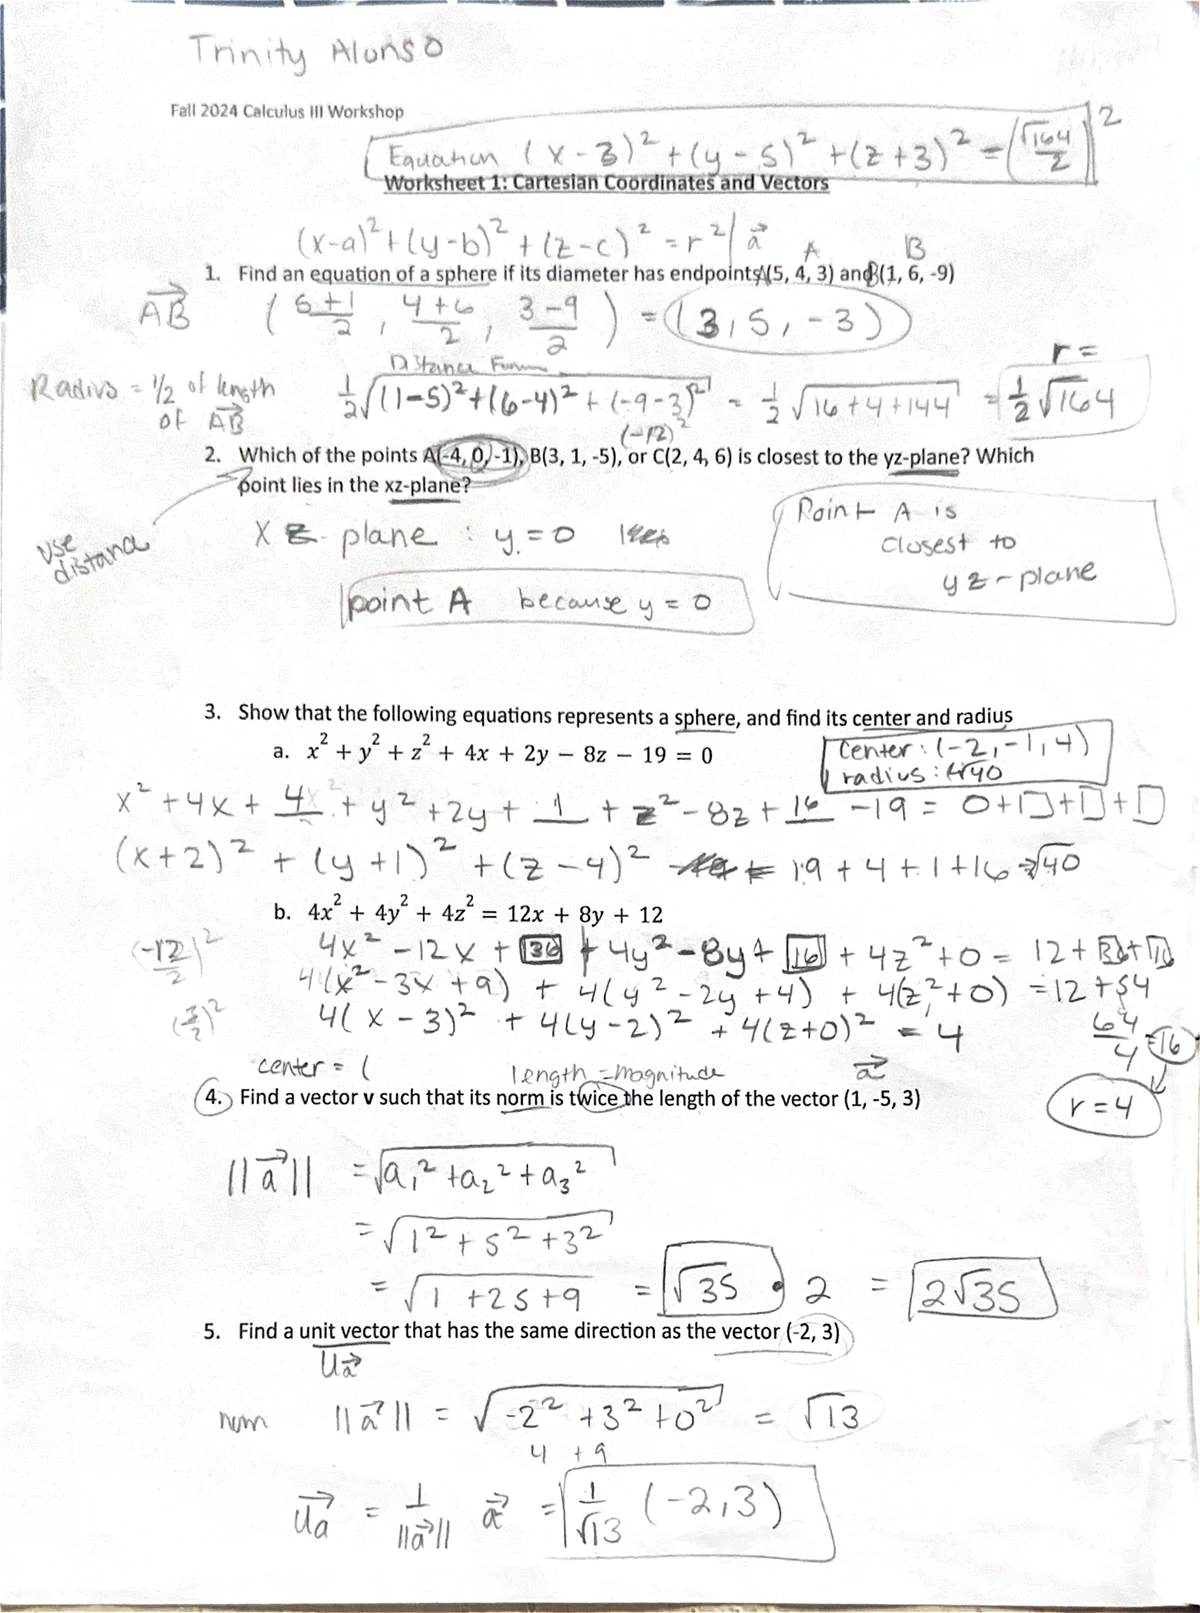 Trinity Alonso
Fall 2024 Calculus III Workshop
Equation (x-3)² + (y-5)² + (z+3)² = (√164/2)²
Worksheet 1: Cartesian Coordinates and Vectors
(x-a)² + (y-b)² + (z-c)² = r² | a⃗
A B
1. Find an equation of a sphere if its diameter has endpoints A(5, 4, 3) and B(1, 6, -9)
AB⃗ (5+1/2, 4+6/2, 3-9/2) = (3, 5, -3)
Distance r =
Radius = 1/2 of length of AB⃗
1/2 √((1-5)² + (6-4)² + (-9-3)²) = 1/2 √16+4+144 = 1/2 √164
(-12)²
2. Which of the points A(-4, 0, -1), B(3, 1, -5), or C(2, 4, 6) is closest to the yz-plane? Which
point lies in the xz-plane?
use distance
XZ-plane : y = 0
point A because y = 0
Point A is
closest to
yz-plane
3. Show that the following equations represents a sphere, and find its center and radius
a. x² + y² + z² + 4x + 2y − 8z − 19 = 0
Center : (-2, -1, 4)
radius : √40
x² + 4x + 4 + y² + 2y + 1 + z² - 8z + 16 - 19 = 0+□+□+□
(x+2)² + (y+1)² + (z-4)² = 19 + 4 + 1 + 16 = √40
b. 4x² + 4y² + 4z² = 12x + 8y + 12
(-12/2)² 4x² - 12x + 36 + 4y² - 8y + 16 + 4z² + 0 = 12 + 36 + 16
4(x² - 3x + 9) + 4(y² - 2y + 4) + 4(z² + 0) = 12 + 54
(3/2)² 4(x-3)² + 4(y-2)² + 4(z+0)² = 4
64/4 = 16
center = (
r = 4
length = magnitude a⃗
4. Find a vector v such that its norm is twice the length of the vector (1, -5, 3)
||a⃗|| = √a₁² + a₂² + a₃²
= √1² + 5² + 3²
= √1 + 25 + 9 = √35 • 2 = 2√35
5. Find a unit vector that has the same direction as the vector (-2, 3)
Ua⃗
norm ||a⃗|| = √-2² + 3² + 0² = √13
4 + 9
Ua⃗ = 1/||a⃗|| a⃗ = 1/√13 (-2, 3)